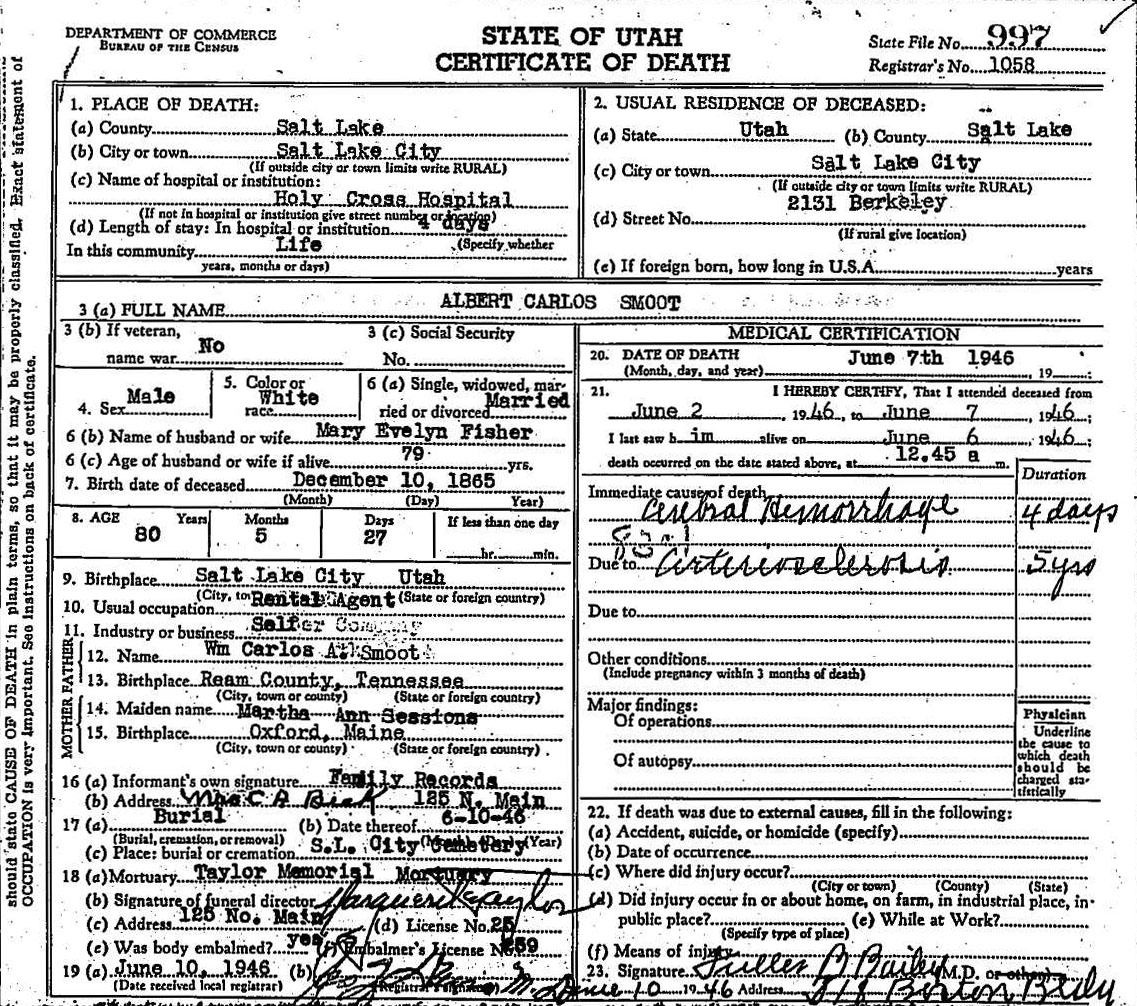 DEPARTMENT OF COMMERCE
BUREAU OF THE CENSUS
STATE OF UTAH
CERTIFICATE OF DEATH
State File No. 997
Registrar's No. 1058
should state CAUSE OF DEATH in plain terms, so that it may be properly classified. Exact statement of
OCCUPATION is very important. See instructions on back of certificate.
1. PLACE OF DEATH:
(a) County Salt Lake
(b) City or town Salt Lake City
(If outside city or town limits write RURAL)
(c) Name of hospital or institution:
Holy Cross Hospital
(If not in hospital or institution give street number or location)
(d) Length of stay: In hospital or institution 4 days
(Specify whether
In this community Life
years, months or days)
2. USUAL RESIDENCE OF DECEASED:
(a) State Utah (b) County Salt Lake
(c) City or town Salt Lake City
(If outside city or town limits write RURAL)
(d) Street No. 2131 Berkeley
(If rural give location)
(e) If foreign born, how long in U.S.A. years
3 (a) FULL NAME ALBERT CARLOS SMOOT
3 (b) If veteran, name war No
3 (c) Social Security No.
4. Sex Male
5. Color or race White
6 (a) Single, widowed, married or divorced Married
6 (b) Name of husband or wife Mary Evelyn Fisher
6 (c) Age of husband or wife if alive 79 yrs.
7. Birth date of deceased December 10, 1865
(Month) (Day) Year)
8. AGE Years Months Days If less than one day
80 5 27 hr. min.
9. Birthplace Salt Lake City Utah
(City, to (State or foreign country)
10. Usual occupation Rental Agent
11. Industry or business Selfer Company
FATHER
12. Name Wm Carlos A. Smoot
13. Birthplace Ream County, Tennessee
(City, town or county) (State or foreign country)
MOTHER
14. Maiden name Martha Ann Sessions
15. Birthplace Oxford, Maine
(City, town or county) (State or foreign country)
16 (a) Informant's own signature Family Records
(b) Address Mrs C A 125 N. Main
17 (a) Burial (b) Date thereof 6-10-46
(Burial, cremation, or removal) (Month) (Day) (Year)
(c) Place: burial or cremation S.L. City Cemetery
18 (a) Mortuary Taylor Memorial Mortuary
(b) Signature of funeral director Marguerite Taylor
(c) Address 125 No. Main (d) License No. 25
(e) Was body embalmed? yes (f) Embalmer's License No. 259
19 (a) June 10, 1946 (b)
(Date received local registrar) (Registrar's signature)
MEDICAL CERTIFICATION
20. DATE OF DEATH June 7th 1946
(Month, day, and year) , 19 :
21. I HEREBY CERTIFY, That I attended deceased from
June 2 1946, to June 7, 1946
I last saw him alive on June 6, 1946;
death occurred on the date stated above, at 12.45 a m.
Duration
Immediate cause of death
Cerebral Hemorrhage 4 days
Due to Arteriosclerosis 5 yrs
Due to
Other conditions
(Include pregnancy within 3 months of death)
Major findings:
Of operations
Of autopsy
Physician
Underline
the cause to
which death
should be
charged sta-
tistically
22. If death was due to external causes, fill in the following:
(a) Accident, suicide, or homicide (specify)
(b) Date of occurrence
(c) Where did injury occur?
(City or town) (County) (State)
(d) Did injury occur in or about home, on farm, in industrial place, in
public place? (e) While at Work?
(Specify type of place)
(f) Means of injury
23. Signature Fuller B Bailey (M.D. or other)
June 10 1946 Address